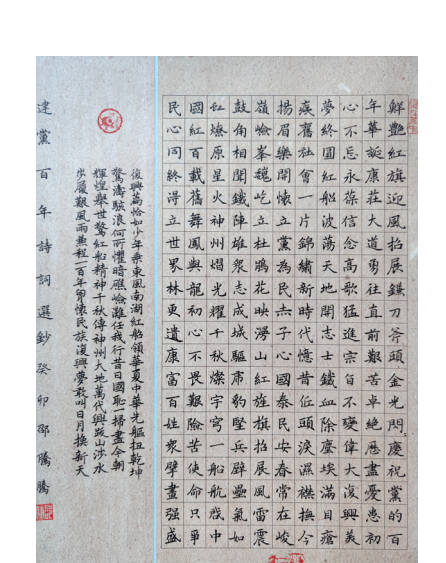 鮮艷紅旗迎風招展鐮刀斧頭金光閃慶祝黨的百
年華誕康莊大道勇往直前艱苦卓絶歷盡憂患初
心不忘永葆信念高歌猛進宗旨不變偉大復興美
夢終圓紅船波蕩天地開志士鐵血除塵埃滿目瘡
痍舊社會一片錦繡新時代憶昔低頭淚濕襟撫今
揚眉樂開懷立黨為民六子心國泰民安春常在峻
嶺嶮峯巍屹立杜鵑花映灣山紅旌旗招展風雷震
鼓角相聞鐵陣雄衆志成城驅虎豹堅兵壁壘氣如
虹燎原星火神州熠光耀千秋燦宇寰一船航啟中
國紅百載舊舞鳳與龍初心不畏艱險苦使命只爭
民心同終得立世界林更遺康富百姓衆擘畫强盛
復興萬恰如少年乘東風南湖紅船領華夏中華先軀扭乾坤
驚濤駭浪何所懼暗礁嶮灘任我行昔日國恥一掃盡今朝
輝煌舉世驚紅船精神千秋傳神州大地萬代興跋山涉水
步履艱風雨兼程一百年懷民族復興夢敢叫日月換新天
建黨百年詩詞選鈔癸卯邵騰騰